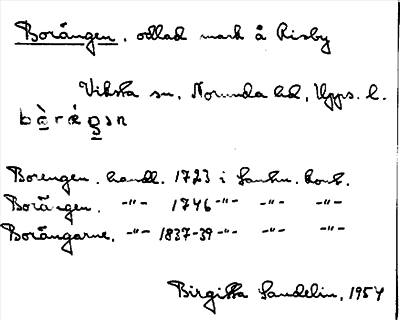 Borängen. odlad mark å Risby
Viksta sn, Norunda hd, Upps. l.
Borengen. handl. 1723 i Lantm. kont.
Borängen. -"- 1746 -"- -"- -"-
Borängarne. -"- 1837-39 -"- -"- -"-
Birgitta Sandelin, 1954